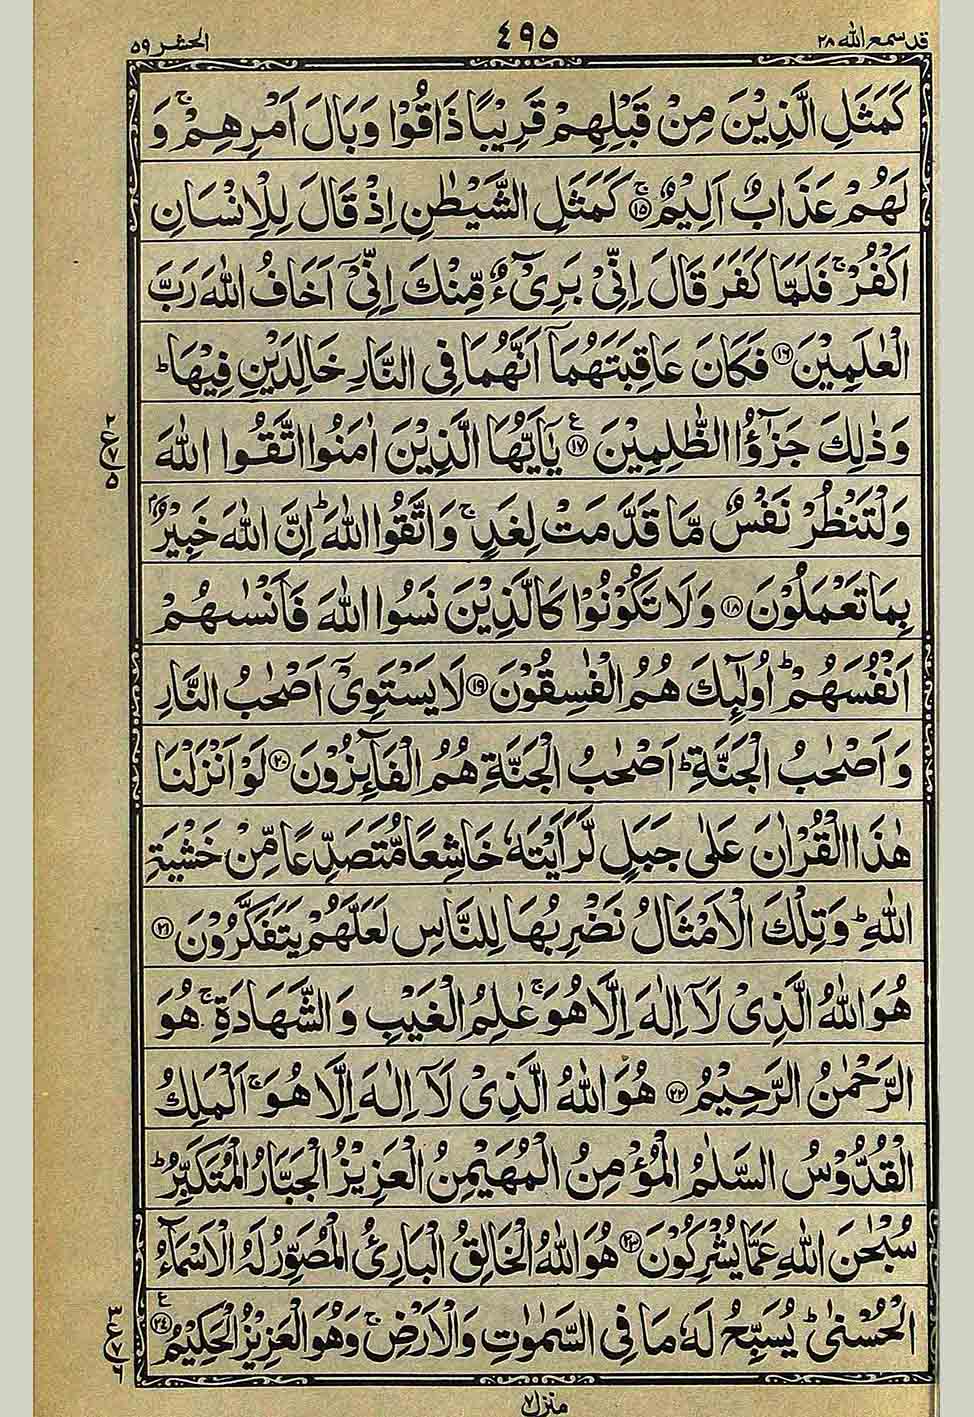 قد سمع الله ٢٨
٤٩٥
الحشر ٥٩
كَمَثَلِ الَّذِيْنَ مِنْ قَبْلِهِمْ قَرِيْبًا ذَاقُوْا وَبَالَ اَمْرِهِمْ ۚ وَ
لَهُمْ عَذَابٌ اَلِيْمٌ ۚ ﴿١٥﴾ كَمَثَلِ الشَّيْطٰنِ اِذْ قَالَ لِلْاِنْسَانِ
اكْفُرْ ۚ فَلَمَّا كَفَرَ قَالَ اِنِّيْ بَرِيْٓءٌ مِّنْكَ اِنِّيْٓ اَخَافُ اللّٰهَ رَبَّ
الْعٰلَمِيْنَ ﴿١٦﴾ فَكَانَ عَاقِبَتَهُمَآ اَنَّهُمَا فِي النَّارِ خَالِدَيْنِ فِيْهَا ؕ
وَذٰلِكَ جَزٰٓؤُا الظّٰلِمِيْنَ ﴿١٧﴾ ع يٰٓاَيُّهَا الَّذِيْنَ اٰمَنُوا اتَّقُوا اللّٰهَ
وَلْتَنْظُرْ نَفْسٌ مَّا قَدَّمَتْ لِغَدٍ ۚ وَاتَّقُوا اللّٰهَ ؕ اِنَّ اللّٰهَ خَبِيْرٌۢ
بِمَا تَعْمَلُوْنَ ﴿١٨﴾ وَلَا تَكُوْنُوْا كَالَّذِيْنَ نَسُوا اللّٰهَ فَاَنْسٰىهُمْ
اَنْفُسَهُمْ ؕ اُولٰٓئِكَ هُمُ الْفٰسِقُوْنَ ﴿١٩﴾ لَا يَسْتَوِيْٓ اَصْحٰبُ النَّارِ
وَاَصْحٰبُ الْجَنَّةِ ؕ اَصْحٰبُ الْجَنَّةِ هُمُ الْفَآئِزُوْنَ ﴿٢٠﴾ لَوْ اَنْزَلْنَا
هٰذَا الْقُرْاٰنَ عَلٰى جَبَلٍ لَّرَاَيْتَهٗ خَاشِعًا مُّتَصَدِّعًا مِّنْ خَشْيَةِ
اللّٰهِ ؕ وَتِلْكَ الْاَمْثَالُ نَضْرِبُهَا لِلنَّاسِ لَعَلَّهُمْ يَتَفَكَّرُوْنَ ﴿٢١﴾
هُوَ اللّٰهُ الَّذِيْ لَآ اِلٰهَ اِلَّا هُوَ ۚ عٰلِمُ الْغَيْبِ وَالشَّهَادَةِ ۚ هُوَ
الرَّحْمٰنُ الرَّحِيْمُ ﴿٢٢﴾ هُوَ اللّٰهُ الَّذِيْ لَآ اِلٰهَ اِلَّا هُوَ ۚ اَلْمَلِكُ
الْقُدُّوْسُ السَّلٰمُ الْمُؤْمِنُ الْمُهَيْمِنُ الْعَزِيْزُ الْجَبَّارُ الْمُتَكَبِّرُ ؕ
سُبْحٰنَ اللّٰهِ عَمَّا يُشْرِكُوْنَ ﴿٢٣﴾ هُوَ اللّٰهُ الْخَالِقُ الْبَارِئُ الْمُصَوِّرُ لَهُ الْاَسْمَآءُ
الْحُسْنٰى ؕ يُسَبِّحُ لَهٗ مَا فِي السَّمٰوٰتِ وَالْاَرْضِ ۚ وَهُوَ الْعَزِيْزُ الْحَكِيْمُ ﴿٢٤﴾ ع
٢
ع ٧
٥
٣
ع ٧
٦
منزل ٧